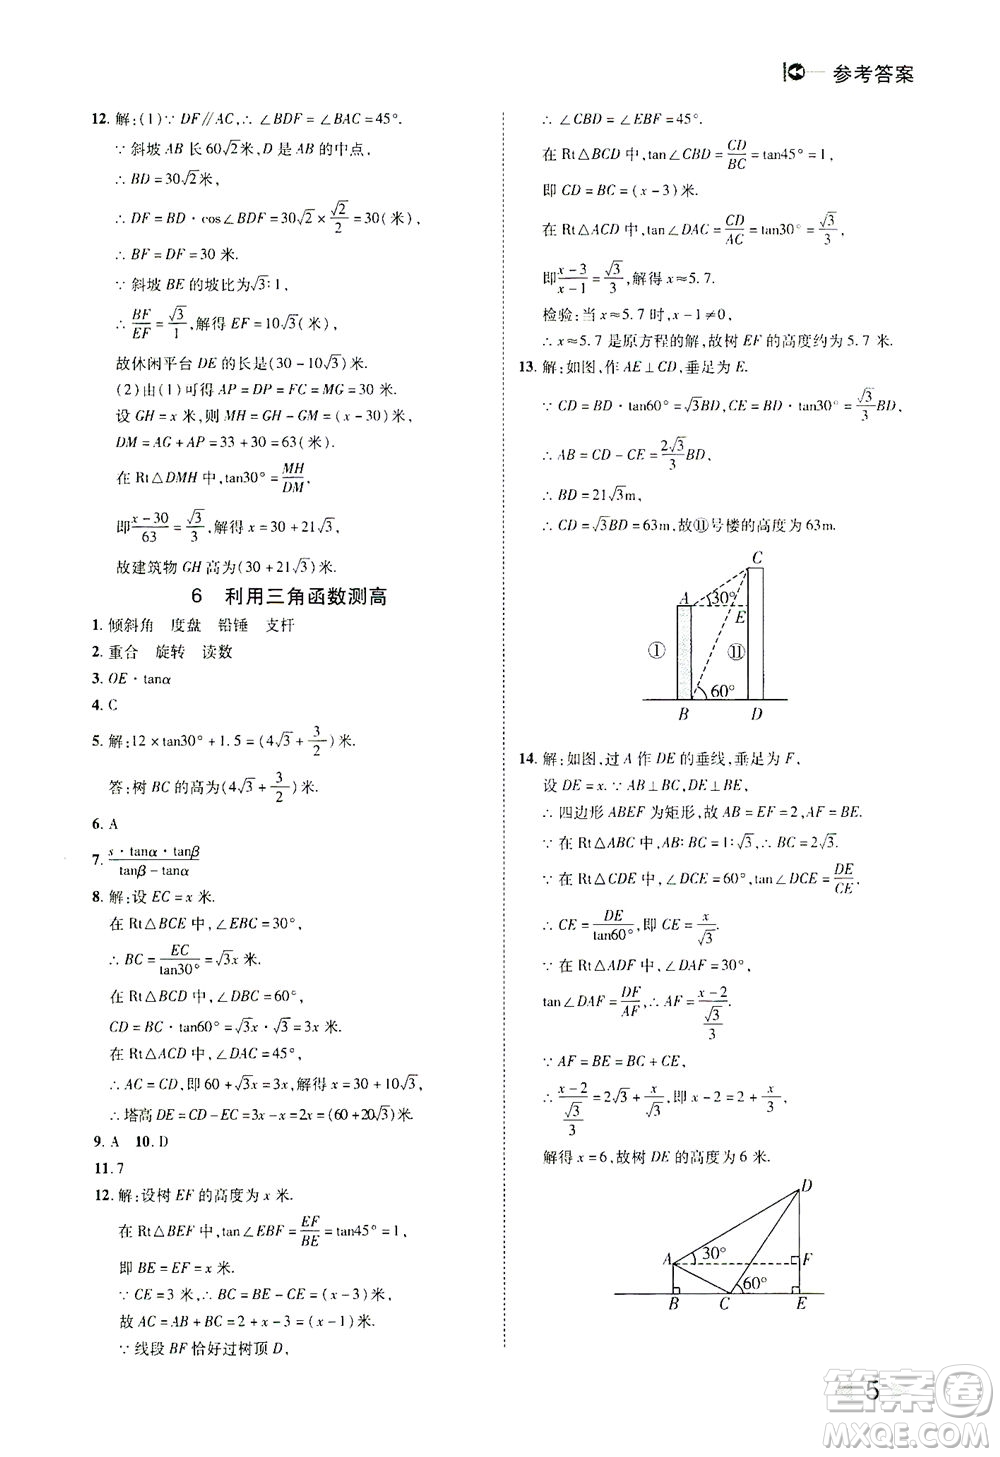 参考答案
12. 解:(1)∵ DF∥AC,∴ ∠BDF=∠BAC=45°.
∵ 斜坡 AB 长 60√2米,D 是 AB 的中点,
∴ BD=30√2米,
∴ DF=BD·cos∠BDF=30√2×√2/2=30(米),
∴ BF=DF=30 米.
∵ 斜坡 BE 的坡比为√3∶1,
∴ BF/EF=√3/1,解得 EF=10√3(米),
故休闲平台 DE 的长是(30-10√3)米.
(2)由(1)可得 AP=DP=FC=MG=30(米).
设 GH=x 米,则 MH=GH-GM=(x-30)米,
DM=AG+AP=33+30=63(米).
在 Rt△DMH 中,tan30°=MH/DM,
即(x-30)/63=√3/3,解得 x=30+21√3,
故建筑物 GH 高为(30+21√3)米.
6 利用三角函数测高
1. 倾斜角 度盘 铅锤 支杆
2. 重合 旋转 读数
3. OE·tanα
4. C
5. 解:12×tan30°+1.5=(4√3+3/2)米.
答:树 BC 的高为(4√3+3/2)米.
6. A
7. (s·tanα·tanβ)/(tanβ-tanα)
8. 解:设 EC=x 米.
在 Rt△BCE 中,∠EBC=30°,
∴ BC=EC/tan30°=√3x 米.
在 Rt△BCD 中,∠DBC=60°,
CD=BC·tan60°=√3x·√3=3x 米.
在 Rt△ACD 中,∠DAC=45°,
∴ AC=CD,即 60+√3x=3x,解得 x=30+10√3,
∴ 塔高 DE=CD-EC=3x-x=(60+20√3)米.
9. A 10. D
11. 7
12. 解:设树 EF 的高度为 x 米.
在 Rt△BEF 中,tan∠EBF=EF/BE=tan45°=1,
即 BE=EF=x 米.
∵ CE=3 米,∴ BC=BE-CE=(x-3)米,
故 AC=AB+BC=2+x-3=(x-1)米.
∵ 线段 BF 恰好过树顶 D,
∴ ∠CBD=∠EBF=45°.
在 Rt△BCD 中,tan∠CBD=CD/BC=tan45°=1,
即 CD=BC=(x-3)米.
在 Rt△ACD 中,tan∠DAC=CD/AC=tan30°=√3/3,
即(x-3)/(x-1)=√3/3,解得 x≈5.7.
检验:当 x≈5.7 时,x-1≠0,
∴ x≈5.7 是原方程的解,故树 EF 的高度约为 5.7 米.
13. 解:如图,作 AE⊥CD,垂足为 E.
∵ CD=BD·tan60°=√3BD,CE=BD·tan30°=√3/3BD,
∴ AB=CD-CE=2√3/3BD,
∴ BD=21√3m,
∴ CD=√3BD=63m,故⑪号楼的高度为 63m.
C
A 30°
E
① ⑪
60°
B D
14. 解:如图,过 A 作 DE 的垂线,垂足为 F,
设 DE=x.∵ AB⊥BC,DE⊥BE,
∴ 四边形 ABEF 为矩形,故 AB=EF=2,AF=BE.
∵ 在 Rt△ABC 中,AB∶BC=1∶√3,∴ BC=2√3.
∵ 在 Rt△CDE 中,∠DCE=60°,tan∠DCE=DE/CE,
∴ CE=DE/tan60°,即 CE=x/√3.
∵ 在 Rt△ADF 中,∠DAF=30°,
tan∠DAF=DF/AF,∴ AF=(x-2)/(√3/3).
∵ AF=BE=BC+CE,
∴ (x-2)/(√3/3)=2√3+x/√3,即 x-2=2+x/3,
解得 x=6,故树 DE 的高度为 6 米.
D
30°
A F
60°
B C E
5
答案圈
MXQE.COM